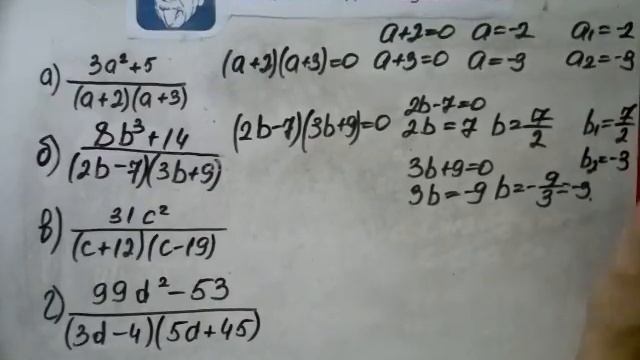 а) (3a²+5)/((a+2)(a+3)) (a+2)(a+3)=0 a+2=0 a=-2 a₁=-2
a+3=0 a=-3 a₂=-3
б) (8b³+14)/((2b-7)(3b+9)) (2b-7)(3b+9)=0 2b-7=0
2b=7 b=7/2 b₁=7/2
3b+9=0 b₂=-3
3b=-9 b=-9/3=-3.
в) 31c²/((c+12)(c-19))
г) (99d²-53)/((3d-4)(5d+45))